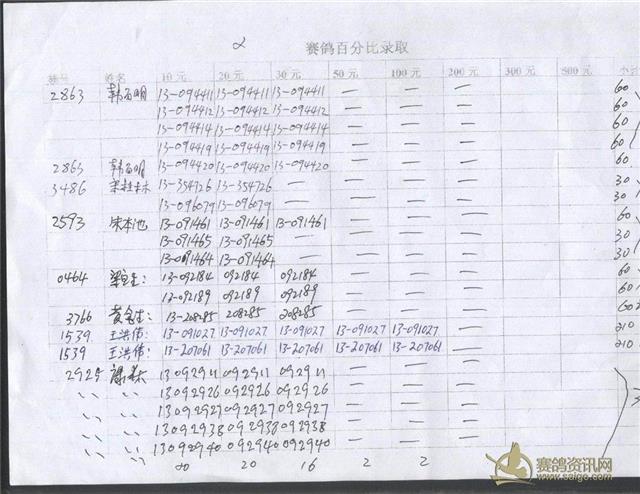 2 赛鸽百分比录取
棚号 姓名 10元 20元 30元 50元 100元 200元 300元 500元 小计
2863 韩百明 13-094411 13-094411 13-094411 — — — 60
13-094412 13-094412 13-094412 — — — 60
13-094414 13-094414 13-094414 — — — 60
13-094419 13-094419 13-094419 — — — 60
2863 韩百明 13-094420 13-094420 13-094420 — — — 60
3486 13-354726 13-354726 — — — — 30
13-096079 13-096079 — — — — 30
2593 宋本池 13-091461 13-091461 13-091461 — — — 60
13-091465 13-091465 — — — — 30
13-091464 13-091464 — — — — 30
0464 13-092184 092184 092184 — — — 60
13-092189 092189 092189 — — — 60
3766 13-208285 208285 208285 — — — 60
1539 王洪伟: 13-091027 13-091027 13-091027 13-091027 13-091027 — 210
1539 王洪伟: 13-207061 13-207061 13-207061 13-207061 13-207061 — 210
2925 13092911 092911 092911 — — —
13092926 092926 092926 — — —
13092927 092927 092927 — — —
13092938 092938 092938 — — —
13092940 092940 092940 — — —
20 20 16 2 2
赛鸽资讯网
www.saige.com